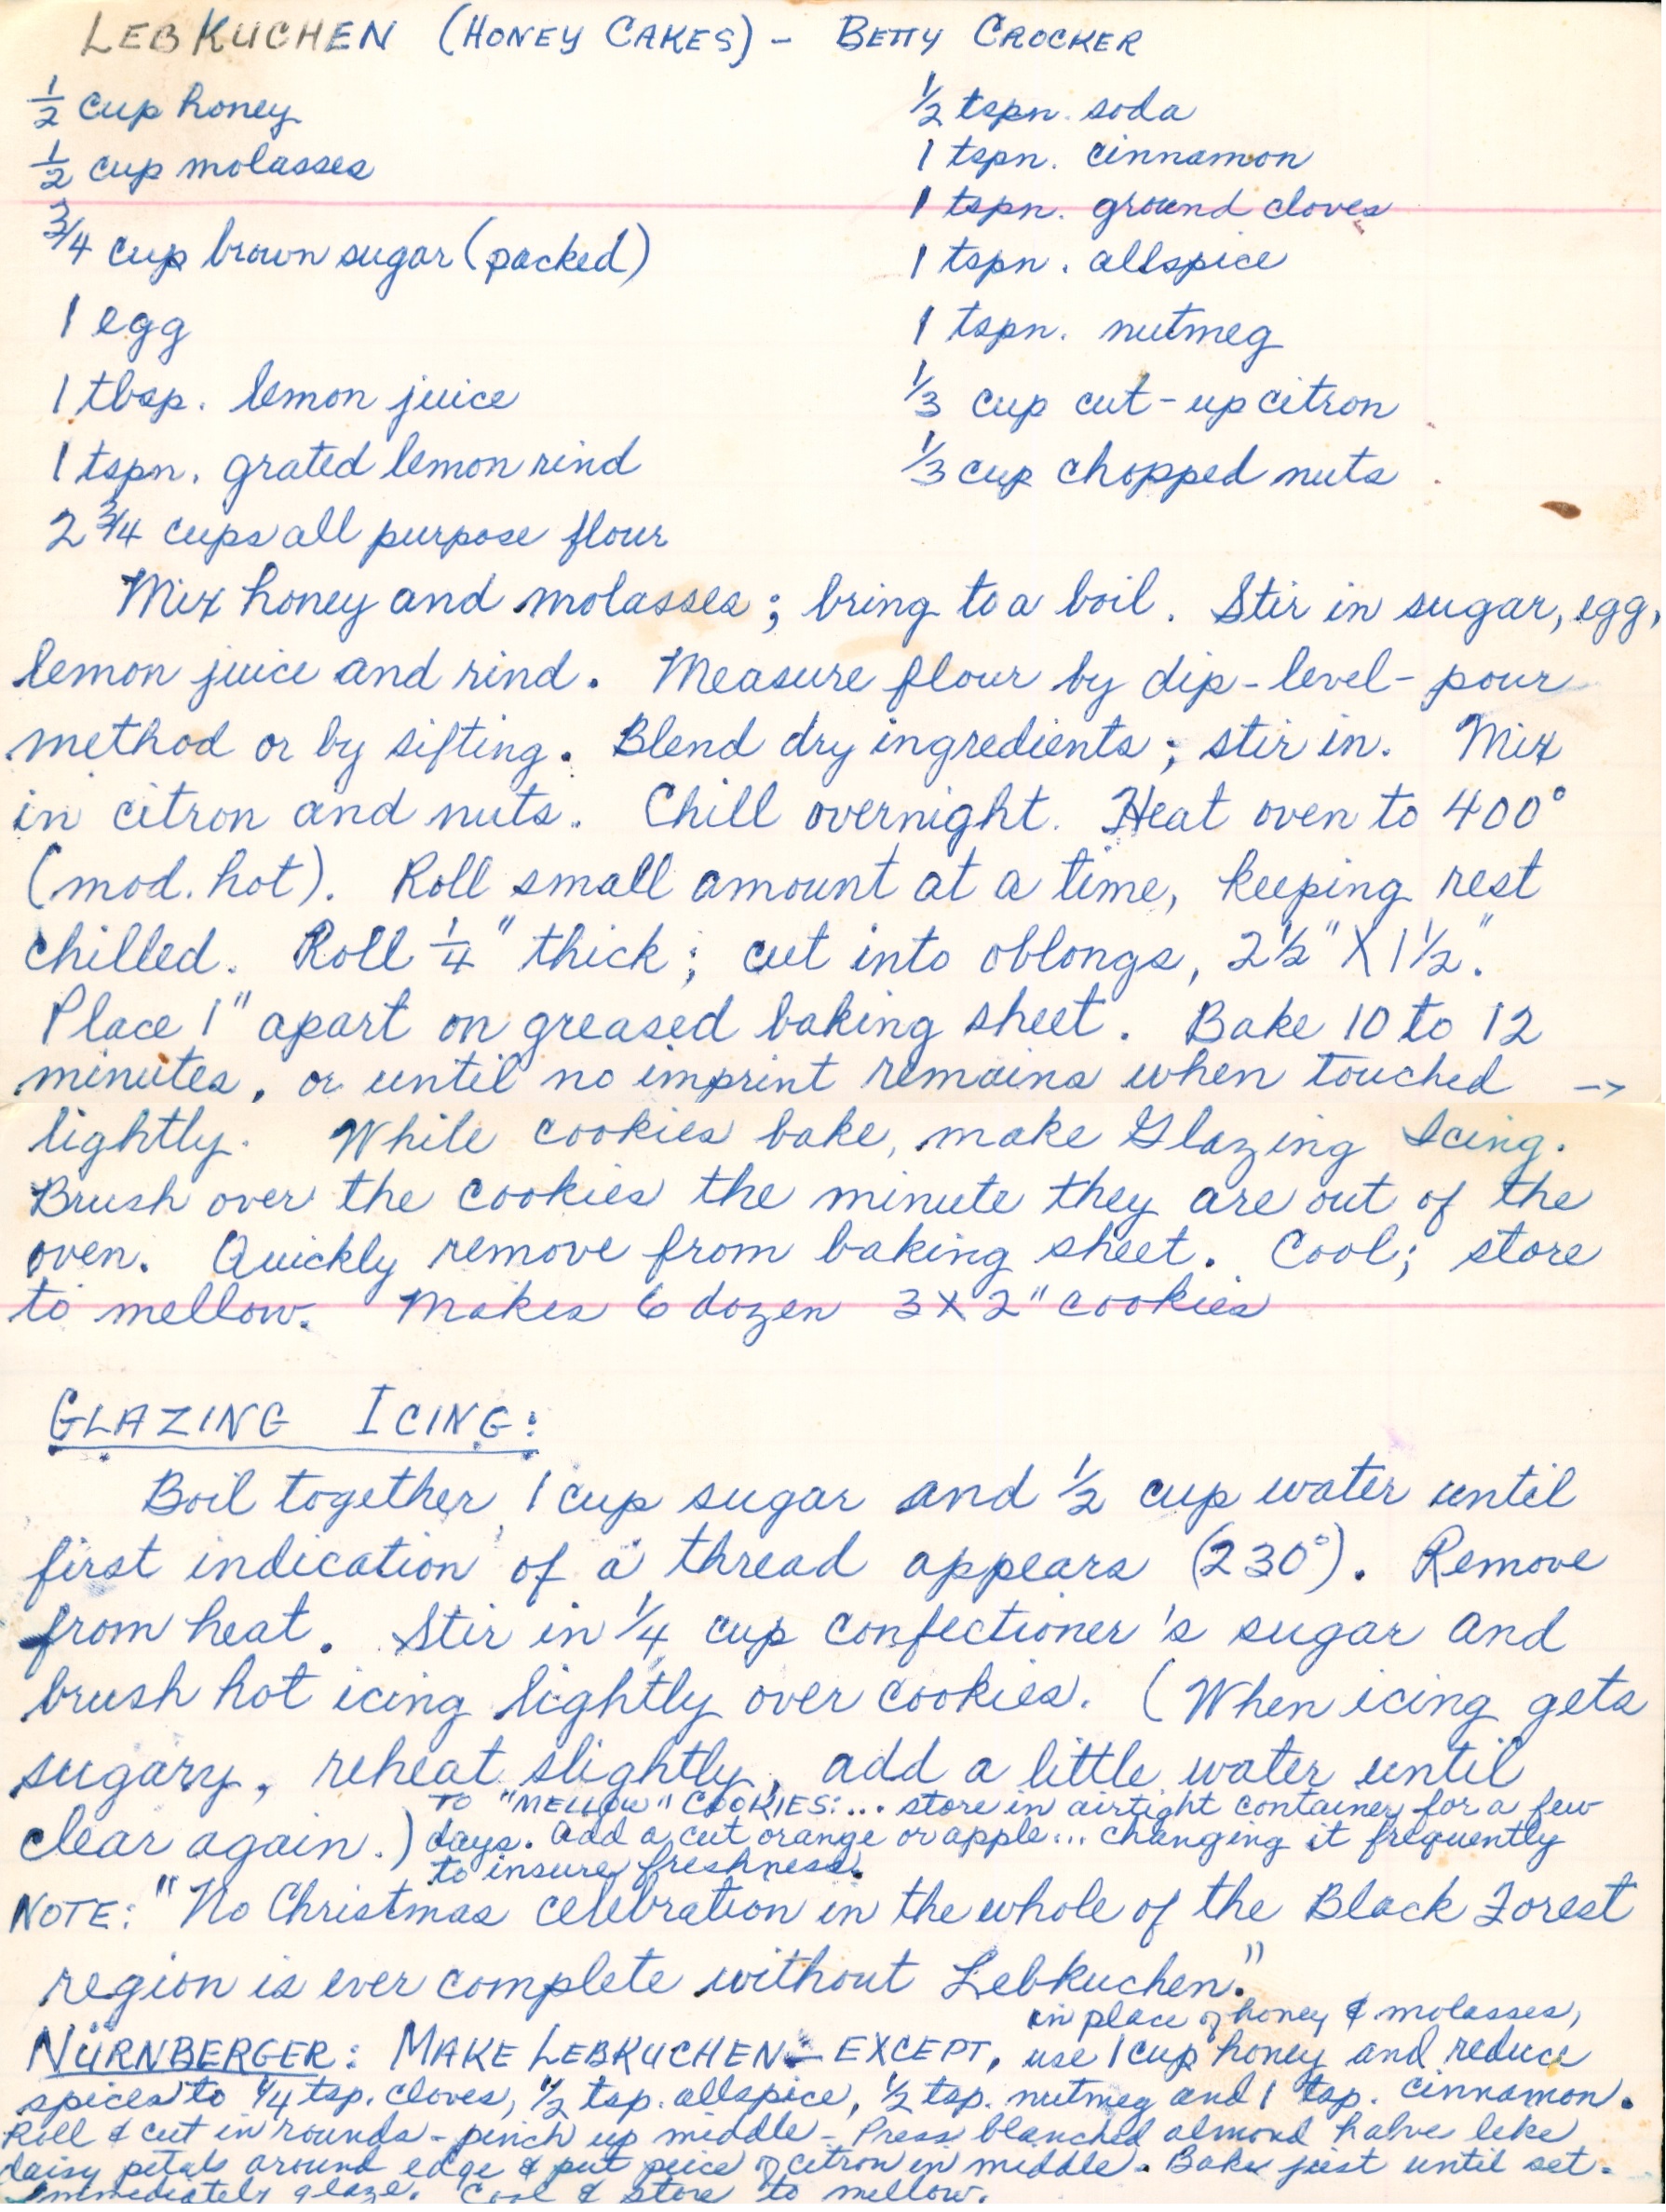 LEBKUCHEN (HONEY CAKES) - BETTY CROCKER
1/2 cup honey
1/2 cup molasses
3/4 cup brown sugar (packed)
1 egg
1 tbsp. lemon juice
1 tspn. grated lemon rind
2 3/4 cups all purpose flour
1/2 tspn. soda
1 tspn. cinnamon
1 tspn. ground cloves
1 tspn. allspice
1 tspn. nutmeg
1/3 cup cut-up citron
1/3 cup chopped nuts
Mix honey and molasses; bring to a boil. Stir in sugar, egg,
lemon juice and rind. Measure flour by dip-level-pour
method or by sifting. Blend dry ingredients; stir in. Mix
in citron and nuts. Chill overnight. Heat oven to 400°
(mod. hot). Roll small amount at a time, keeping rest
chilled. Roll 1/4" thick; cut into oblongs, 2 1/2" X 1 1/2".
Place 1" apart on greased baking sheet. Bake 10 to 12
minutes, or until no imprint remains when touched →
lightly. While cookies bake, make Glazing Icing.
Brush over the cookies the minute they are out of the
oven. Quickly remove from baking sheet. Cool; store
to mellow. Makes 6 dozen 3 X 2" cookies
GLAZING ICING:
Boil together 1 cup sugar and 1/2 cup water until
first indication of a thread appears (230°). Remove
from heat. Stir in 1/4 cup confectioner's sugar and
brush hot icing lightly over cookies. (When icing gets
sugary, reheat slightly, add a little water until
clear again.)
TO "MELLOW" COOKIES:... store in airtight container for a few
days. Add a cut orange or apple... changing it frequently
to insure freshness.
NOTE: "No Christmas celebration in the whole of the Black Forest
region is ever complete without Lebkuchen."
in place of honey & molasses,
NÜRNBERGER: MAKE LEBKUCHEN - EXCEPT, use 1 cup honey and reduce
spices to 1/4 tsp. cloves, 1/2 tsp. allspice, 1/2 tsp. nutmeg and 1 tsp. cinnamon.
Roll & cut in rounds - pinch up middle - Press blanched almond halve like
daisy petals around edge & put peice of citron in middle. Bake just until set.
Immediately glaze. Cool & store to mellow.